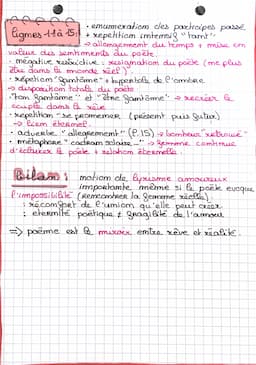 Lignes 11 à 15:
• énumération des participes passé
+ répétition intensif "tant"
→ allongement du temps + mise en
valeur des sentiments du poète.
• négative restrictive : résignation du poète (ne plus
être dans le monde réel).
• répétion "fantôme" + hyperbole de l'ombre
→ disparition totale du poète
• "ton fantôme" et "être fantôme" → recréer le
couple dans le rêve
• répétition "se promener (présent puis futur)
→ lien éternel.
• adverbe "allégrement" (l.15) → bonheur retrouvé
• métaphore "cadran solaire" → femme continue
d'éclairer le poète + relation éternelle.
Bilan :
notion de lyrisme amoureux
importante même si le poète évoque
l'impossibilité (rencontrer la femme réelle).
: réconfort de l'union qu'elle peut créer
: éternité poétique ≠ fragilité de l'amour
⇒ poème est le miroir entre rêve et réalité.